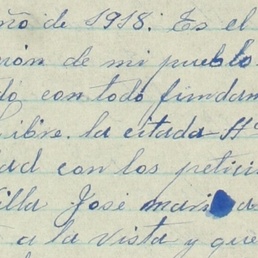 año de 1918: Es el
ión de mi pueblo
do con todo fundam
Libre la citada H
dad con los petici
illa José Maria
a la vista y que